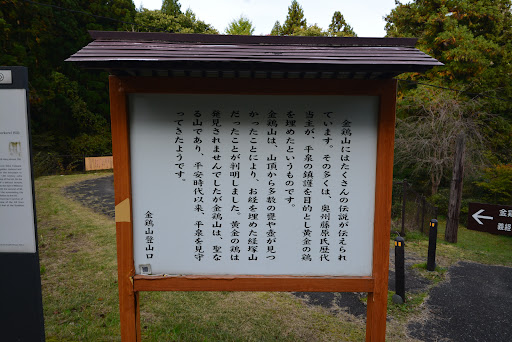 金鶏山にはたくさんの伝説が伝えられ
ています。その多くは、奥州藤原氏歴代
当主が、平泉の鎮護を目的とし黄金の鶏
を埋めたというものです。
金鶏山は、山頂から多数の甕や壺が見つ
かったことにより、お経を埋めた経塚山
だったことが判明しました。黄金の鶏は
発見されませんでしたが金鶏山は、聖な
る山であり、平安時代以来、平泉を見守
ってきたようです。
金鶏山登山口
金鶏
義経